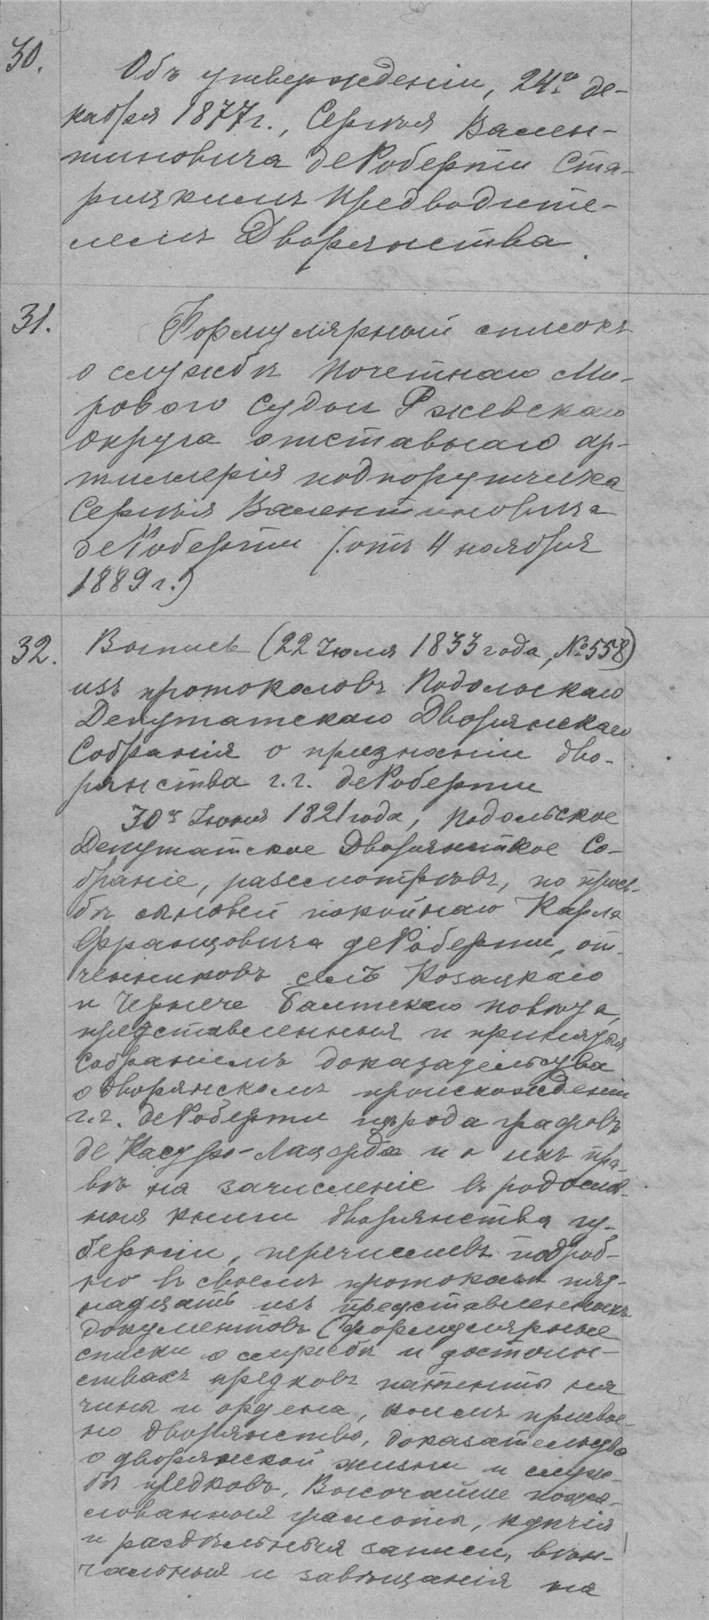 30.
Объ утвержденіи, 24го де-
кабря 1877 г., Сергѣя Вален-
тиновича деРоберти Ста-
рицкимъ Предводите-
лемъ Дворянства.
31.
Формулярный списокъ
о службѣ Почетнаго Ми-
роваго Судьи Ржевскаго
Округа отставнаго ар-
тиллеріи подпоручика
Сергѣя Валентиновича
деРоберти (отъ 4 ноября
1889 г.)
32.
Выпись (22 Іюля 1833 года, № 558)
изъ протоколовъ Подольскаго
Депутатскаго Дворянскаго
Собранія о признаніи дво-
рянства г.г. деРоберти
30го Іюня 1821 года, Подольское
Депутатское Дворянское Со-
браніе, разсмотрѣвъ, по прось-
бѣ сыновей покойнаго Карла
Францовича деРоберти, от-
чинниковъ селъ Козацкаго
и Чернече Балтскаго повѣта,
представленныя и принятыя
Собраніемъ доказательства
о дворянскомъ происхожденіи
г.г. деРоберти изъ рода графовъ
де Кастро-Лацерда и о ихъ пра-
вѣ на зачисленіе въ родослов-
ныя книги дворянства гу-
берніи, перечисливъ подроб-
но въ своемъ протоколѣ пят-
надцать изъ представленныхъ
документовъ (формулярные
списки о службѣ и достоин-
ствахъ предковъ патенты на
чины и ордена, коимъ присвое-
но дворянство, доказательства
о дворянской жизни и служ-
бѣ предковъ, Высочайше пожа-
лованныя грамоты, купчія
и раздѣльныя записи, вѣн-
чальныя и завѣщанія на